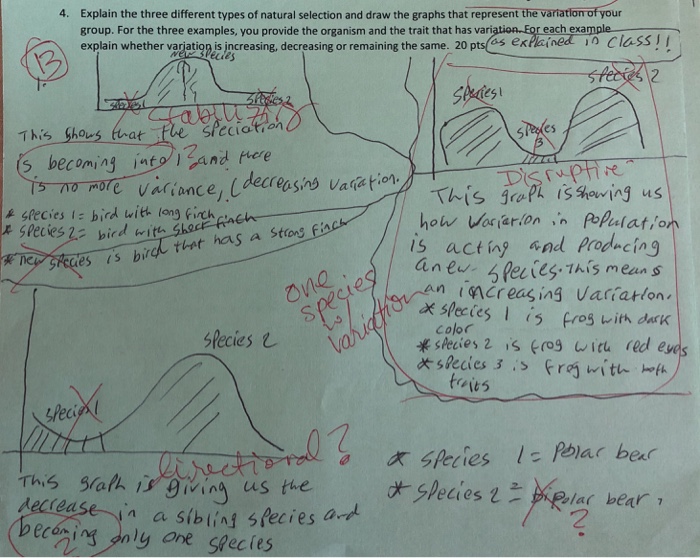 4. Explain the three different types of natural selection and draw the graphs that represent the variation of your
group. For the three examples, you provide the organism and the trait that has variation. For each example
explain whether variation is increasing, decreasing or remaining the same. 20 pts (as explained in class!!
13
New species
species 1
species 2
Stabilizing
This shows that the speciation
is becoming into 1? and there
is no more variance, (decreasing variation.
* species 1 = bird with long finch
* species 2 = bird with short finch
* new species is birch that has a strong finch
species 1
species 3
species 2
Disruptive
This graph is showing us
how variation in population
is acting and producing
a new species. This means
an increasing variation.
* species 1 is frog with dark
color
* species 2 is frog with red eyes
* species 3 is frog with both
traits
one
species
is
variation
species 1
species 2
directional?
This graph is giving us the
decrease in a sibling species and
becoming only one species
?
* species 1 = Polar bear
* species 2 = polar bear
?